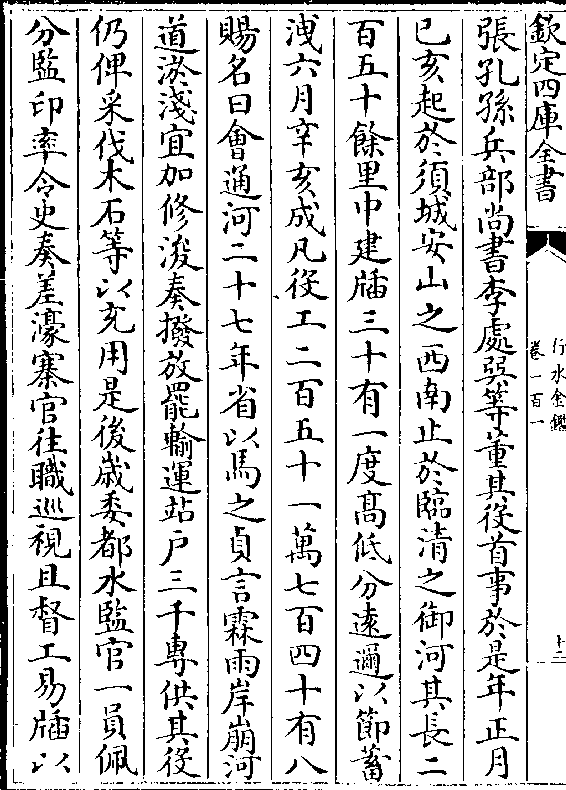 欽定四庫全書
行水金鑑
卷一百一
十二
張孔孫兵部尚書李處巽等董其役首事於是年正月
己亥起於須城安山之西南止於臨清之御河其長二
百五十餘里中建牐三十有一度髙低分逺邇以節蓄
洩六月辛亥成凡役工二百五十一萬七百四十有八
賜名曰會通河二十七年省以馬之貞言霖雨岸崩河
道淤淺宜加修浚奏撥放罷輸運站戶三千專供其役
仍俾采伐木石等以充用是後歳委都水監官一員佩
分監印率令史奏差濠寨官往職巡視且督工易牐以